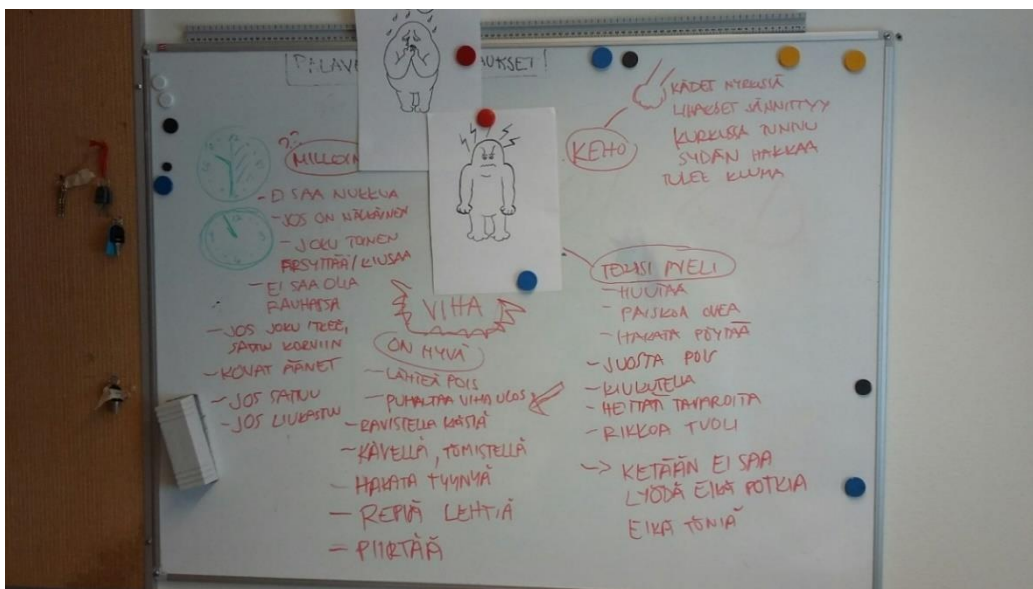 PALAVE AUKSET!
??
MILLOIN
- EI SAA NUKKUA
- JOS ON NÄLKÄINEN
- JOKU TOINEN
ÄRSYTTÄÄ/KIUSAA
- EI SAA OLLA
RAUHASSA
- JOS JOKU ITKEE,
SATTUU KORVIIN
- KOVAT ÄÄNET
- JOS SATTUU
- JOS LIUKASTUU
VIHA
ON HYVÄ
- LÄHTEÄ POIS
- PUHALTAA VIHA ULOS
- RAVISTELLA KÄSIÄ
- KÄVELLÄ, TÖMISTELLÄ
- HAKATA TYYNYÄ
- REPIÄ LEHTIÄ
- PIIRTÄÄ
KEHO
KÄDET NYRKISSÄ
LIHAKSET JÄNNITTYY
KURKUSSA TUNTUU
SYDÄN HAKKAA
TULEE KUUMA
TEKISI MIELI
- HUUTAA
- PAISKOA OVEA
- HAKATA PÖYTÄÄ
- JUOSTA POIS
- KIUKUTELLA
- HEITTÄÄ TAVAROITA
- RIKKOA TUOLI
-> KETÄÄN EI SAA
LYÖDÄ EIKÄ POTKIA
EIKÄ TÖNIÄ